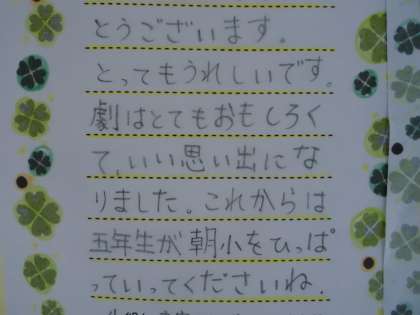 とうございます。
とってもうれしいです。
劇はとてもおもしろく
て、いい思い出にな
りました。これからは
五年生が朝小をひっぱ
っていってくださいね。